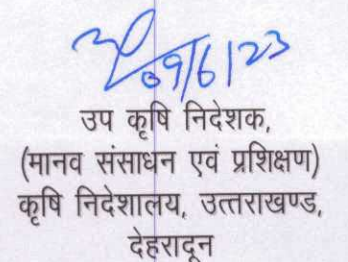 09/6/23
उप कृषि निदेशक,
(मानव संसाधन एवं प्रशिक्षण)
कृषि निदेशालय, उत्तराखण्ड,
देहरादून